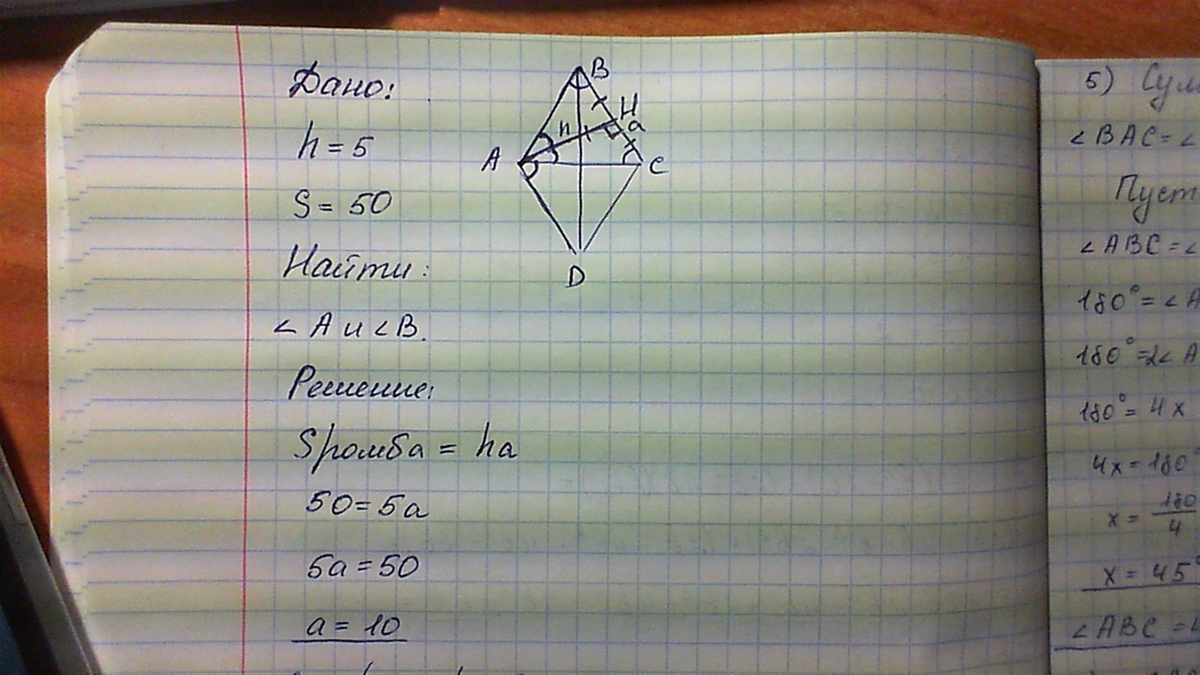 Дано:
h = 5
S = 50
Найти:
∠ A и ∠ B.
Решение:
Sромба = ha
50 = 5a
5a = 50
a = 10
B
H
h
a
A
C
D
5)
∠ BAC = ∠
∠ ABC = ∠
180° = ∠ A
180° = 2∠ A
180° = 4x
4x = 180°
x = 180/4
x = 45°
∠ ABC =